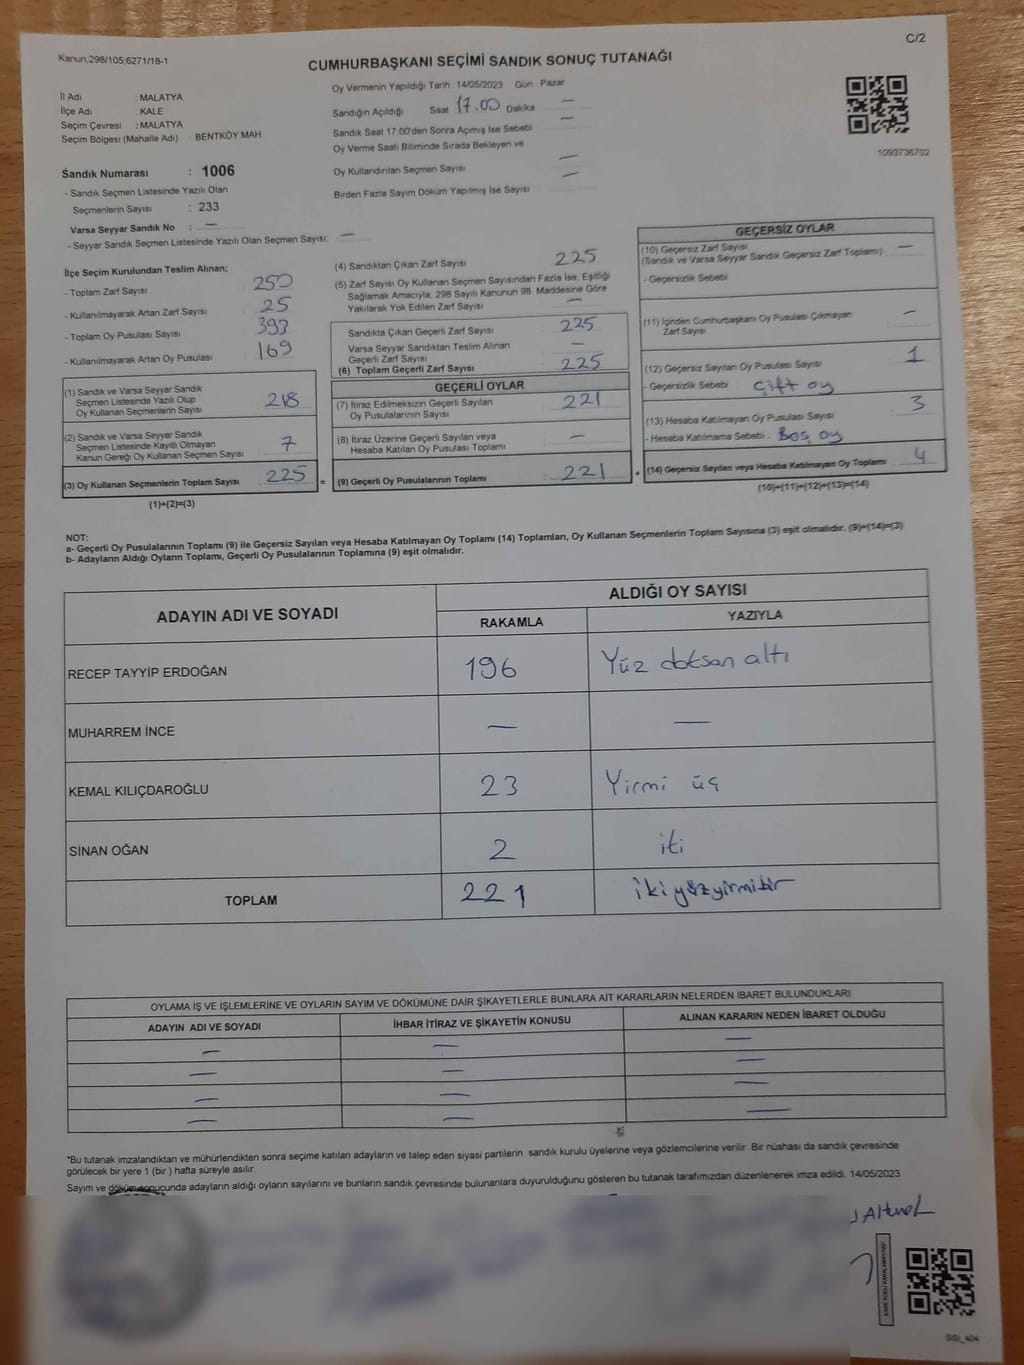 Kanun;298/105;6271/18-1
C/2
CUMHURBAŞKANI SEÇİMİ SANDIK SONUÇ TUTANAĞI
İl Adı : MALATYA
İlçe Adı : KALE
Seçim Çevresi : MALATYA
Seçim Bölgesi (Mahalle Adı) : BENTKÖY MAH.
Oy Vermenin Yapıldığı Tarih : 14/05/2023 Gün : Pazar
Sandığın Açıldığı Saat 17.00 Dakika —
Sandık Saat 17.00'den Sonra Açılmış İse Sebebi : —
Oy Verme Saati Bitiminde Sırada Bekleyen ve
Oy Kullandırılan Seçmen Sayısı —
Birden Fazla Sayım Döküm Yapılmış İse Sayısı —
1093736702
Sandık Numarası : 1006
- Sandık Seçmen Listesinde Yazılı Olan
Seçmenlerin Sayısı : 233
Varsa Seyyar Sandık No : —
- Seyyar Sandık Seçmen Listesinde Yazılı Olan Seçmen Sayısı: —
İlçe Seçim Kurulundan Teslim Alınan;
- Toplam Zarf Sayısı 250
- Kullanılmayarak Artan Zarf Sayısı 25
- Toplam Oy Pusulası Sayısı 393
- Kullanılmayarak Artan Oy Pusulası 169
(1) Sandık ve Varsa Seyyar Sandık
Seçmen Listesinde Yazılı Olup
Oy Kullanan Seçmenlerin Sayısı 218
(2) Sandık ve Varsa Seyyar Sandık
Seçmen Listesinde Kayıtlı Olmayan
Kanun Gereği Oy Kullanan Seçmen Sayısı 7
(3) Oy Kullanan Seçmenlerin Toplam Sayısı : 225 =
(1)+(2)=(3)
(4) Sandıktan Çıkan Zarf Sayısı 225
(5) Zarf Sayısı Oy Kullanan Seçmen Sayısından Fazla İse, Eşitliği
Sağlamak Amacıyla; 298 Sayılı Kanunun 98. Maddesine Göre
Yakılarak Yok Edilen Zarf Sayısı —
Sandıkta Çıkan Geçerli Zarf Sayısı : 225
Varsa Seyyar Sandıktan Teslim Alınan
Geçerli Zarf Sayısı —
(6) Toplam Geçerli Zarf Sayısı 225
GEÇERLİ OYLAR
(7) İtiraz Edilmeksizin Geçerli Sayılan
Oy Pusulalarının Sayısı 221
(8) İtiraz Üzerine Geçerli Sayılan veya
Hesaba Katılan Oy Pusulası Toplamı —
(9) Geçerli Oy Pusulalarının Toplamı : 221 +
GEÇERSİZ OYLAR
(10) Geçersiz Zarf Sayısı
(Sandık ve Varsa Seyyar Sandık Geçersiz Zarf Toplamı) —
- Geçersizlik Sebebi
(11) İçinden Cumhurbaşkanı Oy Pusulası Çıkmayan
Zarf Sayısı —
(12) Geçersiz Sayılan Oy Pusulası Sayısı 1
- Geçersizlik Sebebi Çift oy
(13) Hesaba Katılmayan Oy Pusulası Sayısı 3
- Hesaba Katılmama Sebebi : Boş oy
(14) Geçersiz Sayılan veya Hesaba Katılmayan Oy Toplamı 4
(10)+(11)+(12)+(13)=(14)
NOT:
a- Geçerli Oy Pusulalarının Toplamı (9) ile Geçersiz Sayılan veya Hesaba Katılmayan Oy Toplamı (14) Toplamları, Oy Kullanan Seçmenlerin Toplam Sayısına (3) eşit olmalıdır. (9)+(14)=(3)
b- Adayların Aldığı Oyların Toplamı, Geçerli Oy Pusulalarının Toplamına (9) eşit olmalıdır.
ADAYIN ADI VE SOYADI
ALDIĞI OY SAYISI
RAKAMLA YAZIYLA
RECEP TAYYİP ERDOĞAN 196 Yüz doksan altı
MUHARREM İNCE — —
KEMAL KILIÇDAROĞLU 23 Yirmi üç
SİNAN OĞAN 2 iki
TOPLAM 221 ikiyüzyirmibir
OYLAMA İŞ VE İŞLEMLERİNE VE OYLARIN SAYIM VE DÖKÜMÜNE DAİR ŞİKAYETLERLE BUNLARA AİT KARARLARIN NELERDEN İBARET BULUNDUKLARI
ADAYIN ADI VE SOYADI İHBAR İTİRAZ VE ŞİKAYETİN KONUSU ALINAN KARARIN NEDEN İBARET OLDUĞU
— — —
— — —
— — —
— — —
*Bu tutanak imzalandıktan ve mühürlendikten sonra seçime katılan adayların ve talep eden siyasi partilerin sandık kurulu üyelerine veya gözlemcilerine verilir. Bir nüshası da sandık çevresinde
görülecek bir yere 1 (bir ) hafta süreyle asılır.
Sayım ve döküm sonucunda adayların aldığı oyların sayılarını ve bunların sandık çevresinde bulunanlara duyurulduğunu gösteren bu tutanak tarafımızdan düzenlenerek imza edildi. 14/05/2023